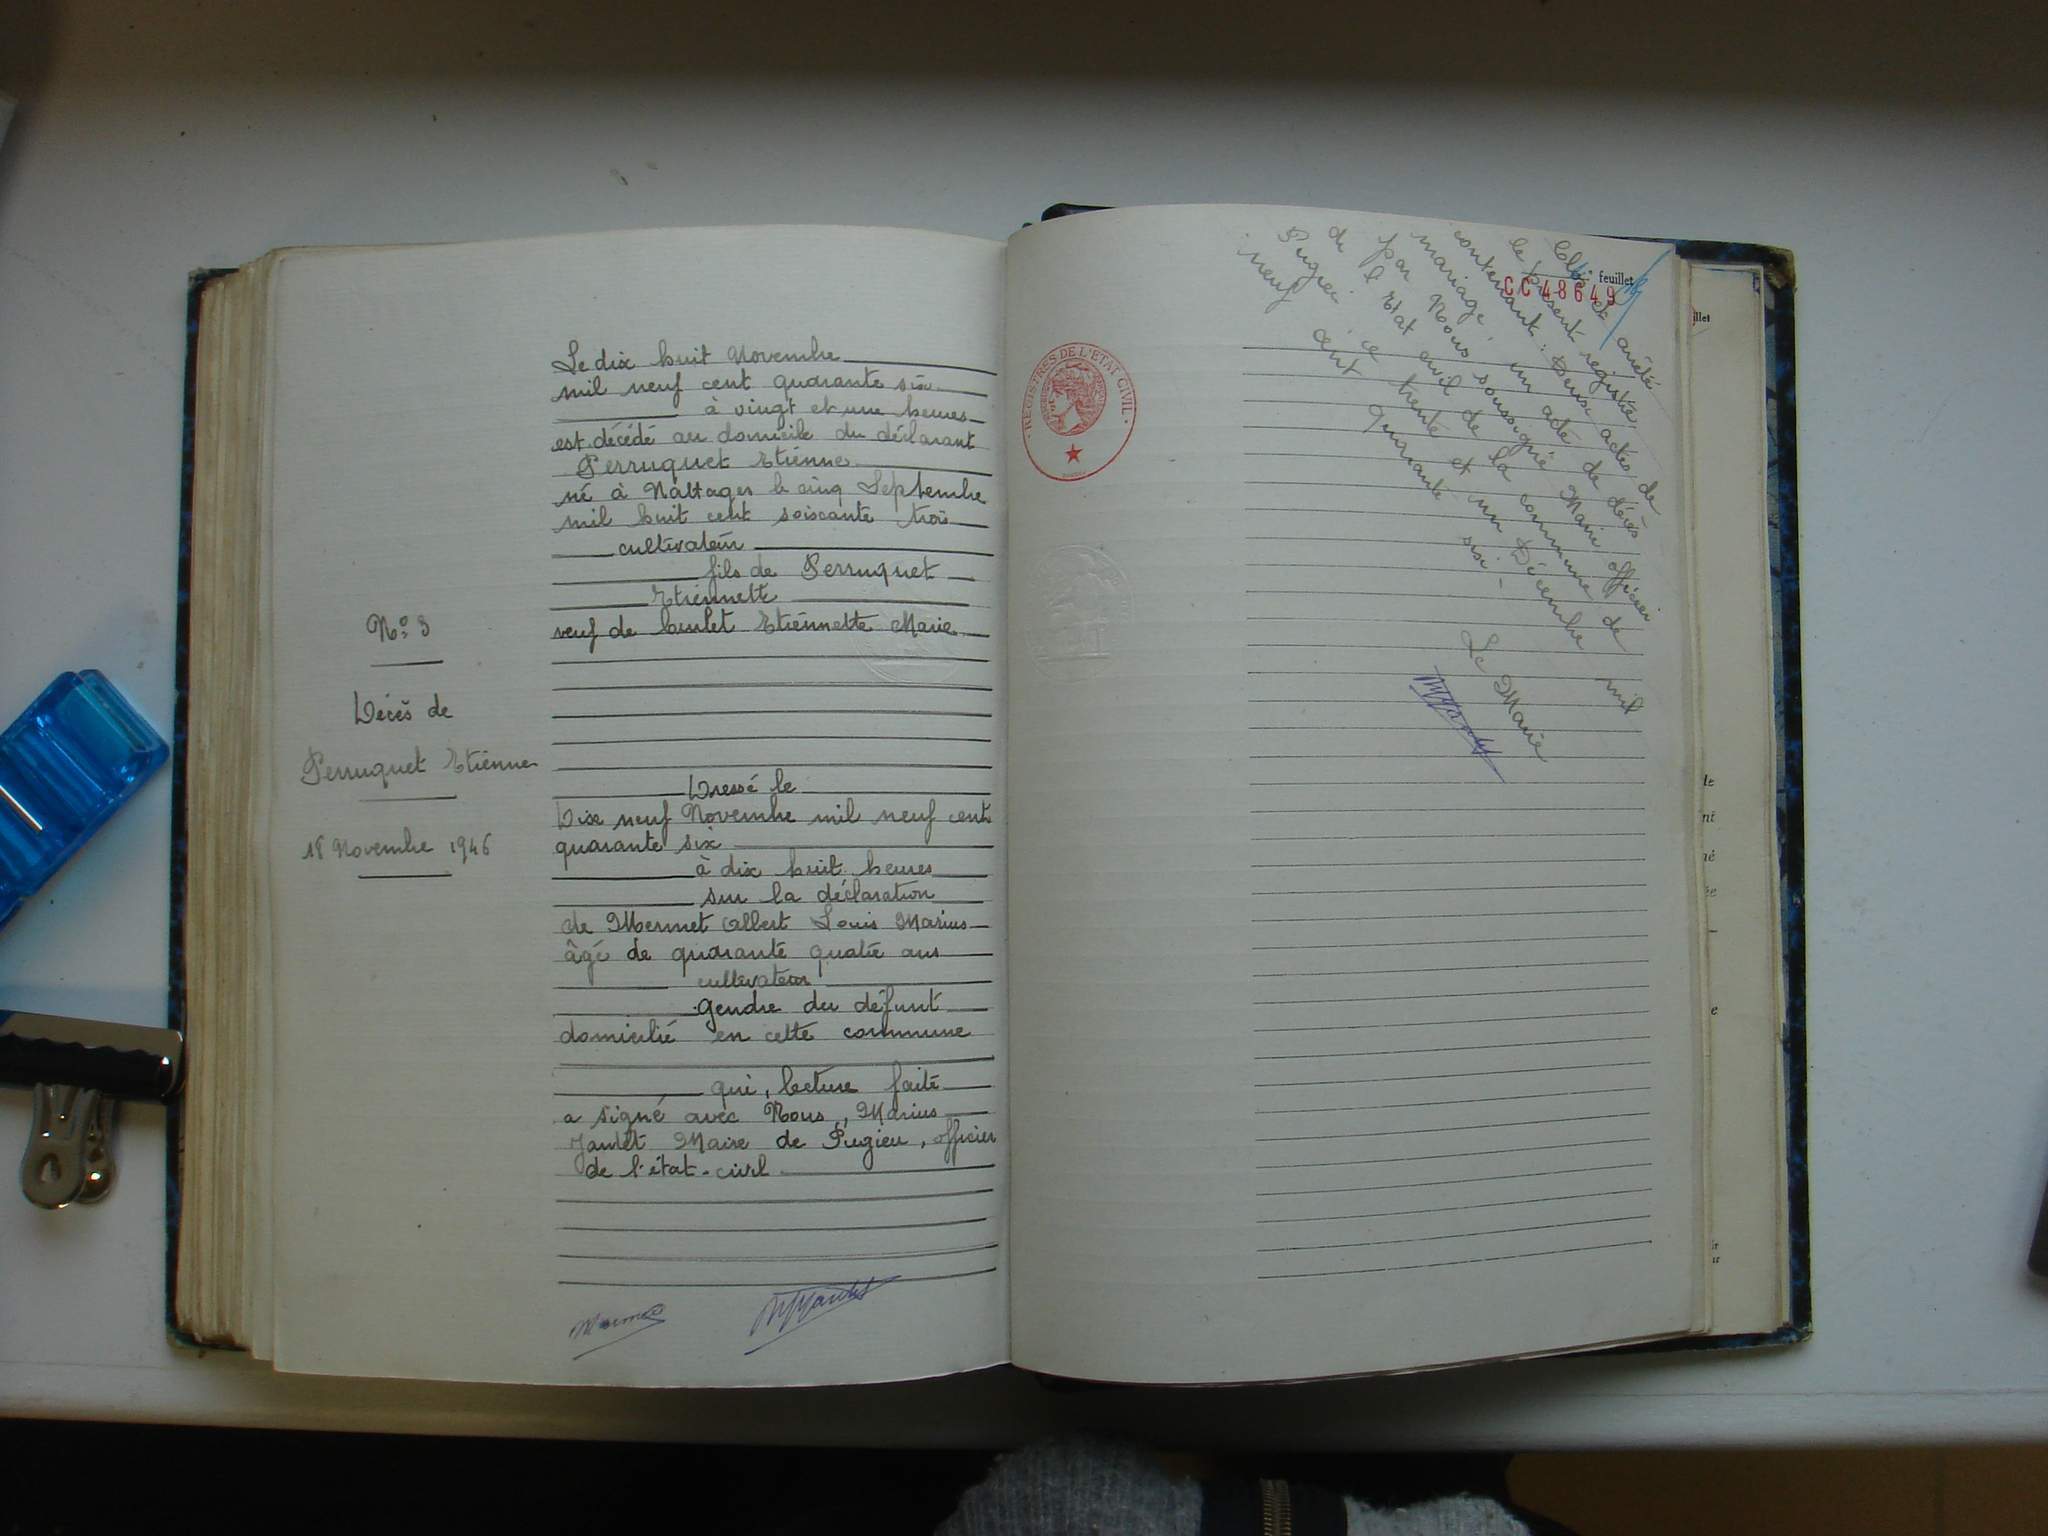 N° 3
Décès de
Perruquet Etienne
18 Novembre 1946
Le dix huit Novembre
mil neuf cent quarante six
à vingt et une heures
est décédé au domicile du déclarant
Perruquet Etienne
né à Nattages le cinq Septembre
mil huit cent soixante trois
cultivateur
fils de Perruquet
Etiennette
veuf de Etiennette Marie
Dressé le
Dix neuf Novembre mil neuf cent
quarante six
à dix huit heures
sur la déclaration
de Mermet Albert Louis Marius
âgé de quarante quatre ans
cultivateur
gendre du défunt
domicilié en cette commune
qui, lecture faite
a signé avec Nous, Marius
Jantet Maire de Pugieu, officier
de l'état-civil
feuillet
CC 48649
REGISTRES DE L'ÉTAT CIVIL
Clos et arrêté
le présent registre,
contenant : Deux actes de
mariage, un acte de décès
par Nous soussigné Maire officier
de l'Etat civil de la commune de
Pugieu ce trente et un Décembre mil
neuf cent quarante six.
Le Maire
llet